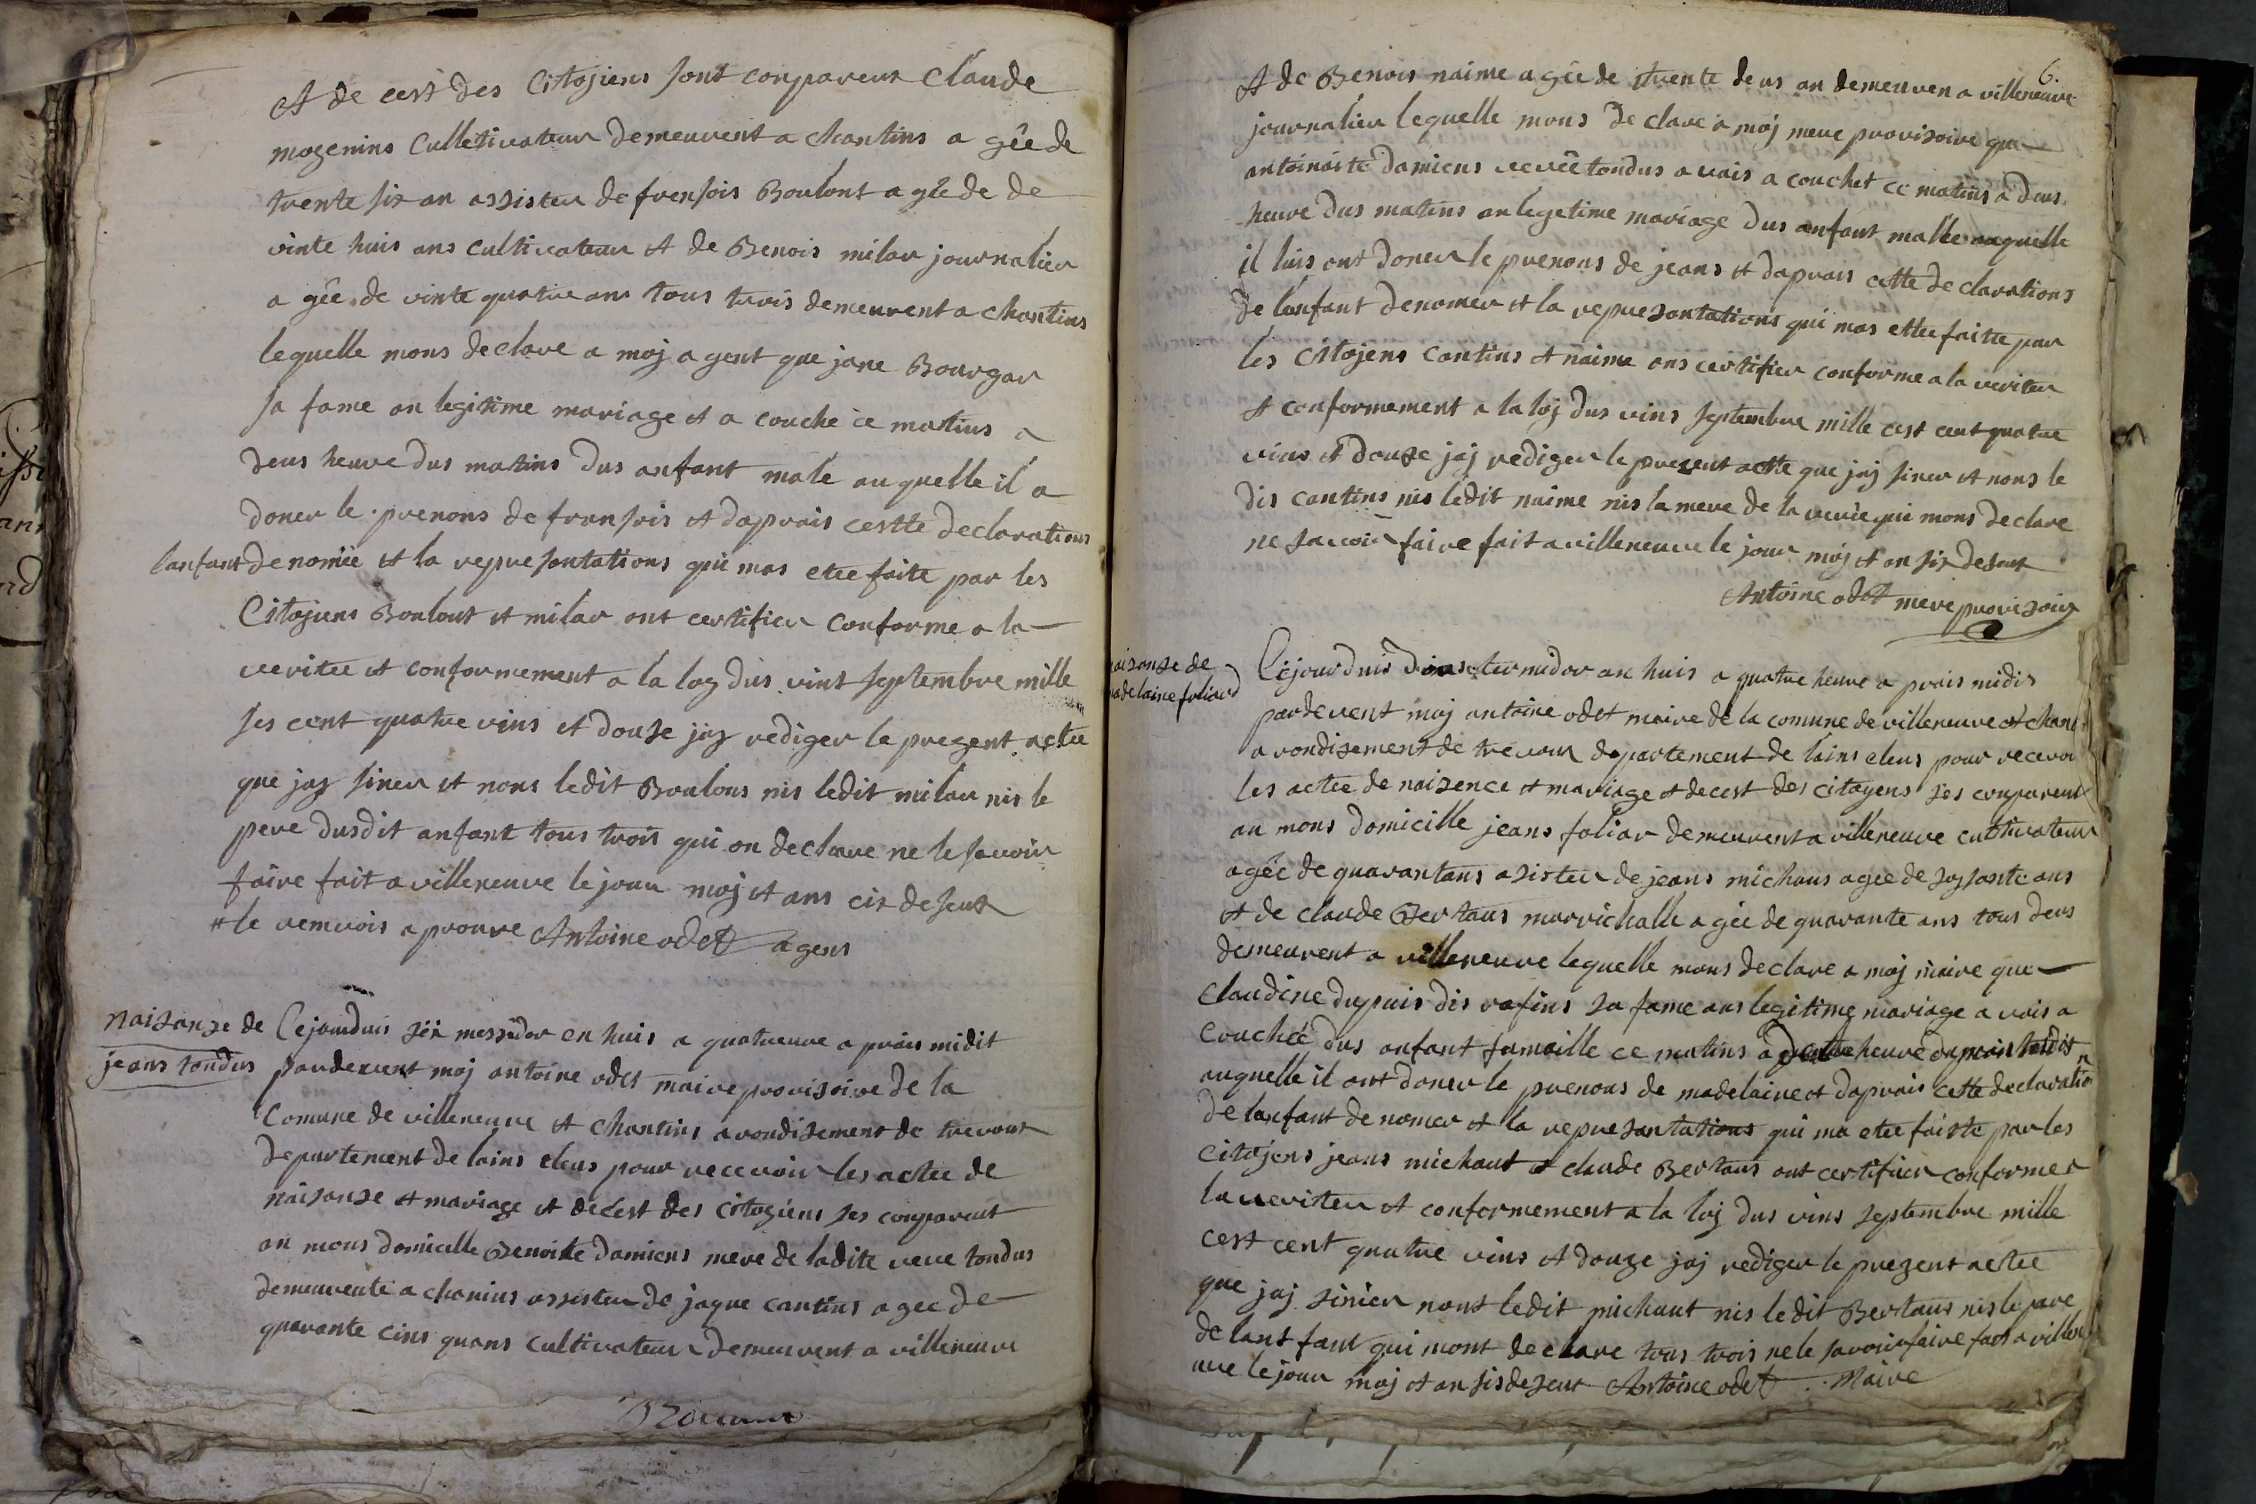 et de cest des Citojiens sont conpareus Claude
mogenins Culleticateur demeurent a chantins a gée de
trente six an assister de frensois Boulont a gée de de
vinte huis ans cultivateur et de Benois milar journalier
a gée de vinte quatre ans tous trois demeurent a chantins
lequelle mons declare a moj agent que jane Bourgar
sa fame an legitime mariage et a couche ce matins a
deus heure dus matins dus anfant male auquelle il a
doner le prenons de fransois et daprais cestte declarations
lanfant denomée et la represantations qui mas etee faite par les
Citojiens Boulont et milar ont certifier conforme a la
veritee et conformement a la loy dus vint septembre mille
ses cent quatre vins et douse jaj rediger le prezent actee
que jay siner et nons ledit Boulons nis ledit milar nis le
pere dusdit anfant tous trois qui on declare ne le savoir
faire fait a villeneuve le jour moj et ans cis deseut
# le remvois aprouve Antoine odet agens
naisanse de
jeans tondus
Cejourduis six messidor en huis a quatreure aprais midit
pardevent moj antoine odet maire provisoire de la
Comune de villeneuve et chantins arondisement de trevout
departement de lains eleus pour recevoir les actee de
naisanse et mariage et decest des citojiens ses conpareut
an mons domicille Benoite damiens mere de ladite veve tondus
demeurente a chanins assister de jaque cantins agee de
quarante cins quans cultivateur demeurent a villeneuve
6.
et de Benois naime agée de trente deus an demeuren a villeneuve
journalier lequelle mons declare a moj mere provisoire que
antoinaite damiens vevée tondus avais a couchet ce matins a deus
heure dus matins an legetime mariage dus anfant malle auquelle
il luis ont doner le prenons de jeans et daprais cette declarations
de lanfant denomer et la represantations qui mas etee faitte par
les Citojens cantins et naime ons certifier conforme a la veriter
et conformement a la loj dus vins septembre mille cest cent quatre
vins et douze jaj rediger le prezent actte que jaj siner et nons le
dis cantins nis ledit naime nis la mere de la vevée qui mons declare
ne savoir faire fait a villeneuve le jour moj et an sis deseut
Antoine odet mere provisoire
naisanse de
madelaine foliard
Cejourduis douse termidor an huis a quatre heure aprais midis
pardevent moj antoine odet maire de la comune de villeneuve et chan
arondisement de trevour departement de lains eleus pour recevoi
les actee de naizence et mariage et decest des citoyens ses conparent
an mons domicille jeans foliar demeurent a villeneuve cultivateur
agée de quarantans asister de jeans michaus agee de soysante ans
et de claude Bertaus marrichalle agée de quarante ans tous deus
demeurent a villeneuve lequelle mons declare a moj maire que
claudine dupuis dis rafins sa fame ans legitime mariage avois a
couchée dus anfant fumaille ce matins a heure
auquelle il ont doner le prenons de madelaine et daprais cette declaratio
de lanfant denomer et la represantations qui ma etee faiste par les
Citojens jeans michaut et claude Bertaus ont certifier conforme a
la veriter et conformement a la loj dus vins septembre mille
cest cent quatre vins et douze jaj rediger le prezent actee
que jaj sinier nont ledit michaut nis ledit Bertaus nis le pare
de lantfant qui mont declare tous trois ne le savoir faire fait a villen
uve le jour moj et an sis deseut Antoine odet Maire